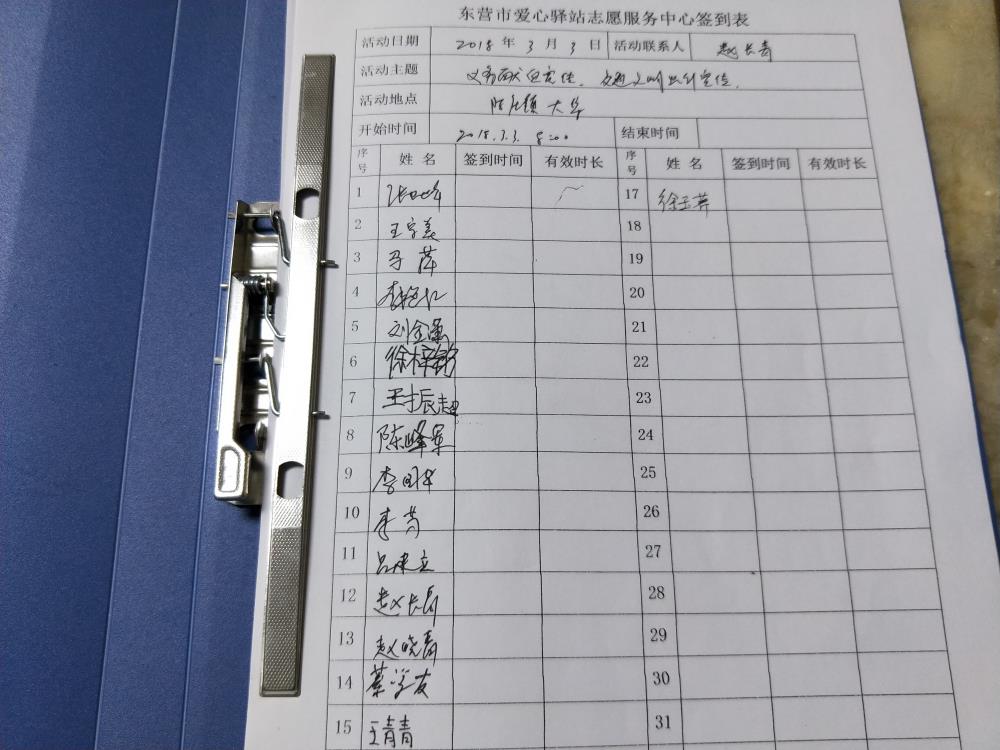 东营市爱心驿站志愿服务中心签到表
活动日期 2018 年 3 月 3 日 活动联系人 赵长青
活动主题 义务献血宣传、交通文明出行宣传.
活动地点 陈庄镇 大华
开始时间 2018.3.3. 8:00 结束时间
序号 姓名 签到时间 有效时长 序号 姓名 签到时间 有效时长
1 17 徐玉萍
2 王学美 18
3 马萍 19
4 20
5 刘金 21
6 徐梓 22
7 王振超 23
8 陈峰军 24
9 李明华 25
10 李芳 26
11 吕建立 27
12 赵长青 28
13 赵晓青 29
14 蔡学友 30
15 王青青 31